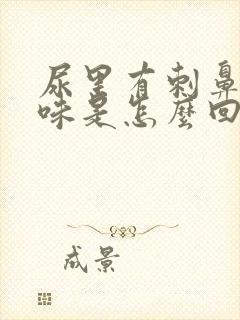 尿里有刺鼻
味是怎麼回
成景